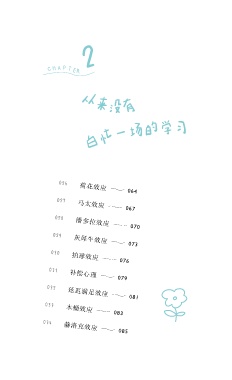 CHAPTER 2
从来没有
白忙一场的学习
荷花效应 064
马太效应 067
潘多拉效应 070
灰犀牛效应 073
拍球效应 076
补偿心理 079
延迟满足效应 081
木桶效应 083
赫洛克效应 085